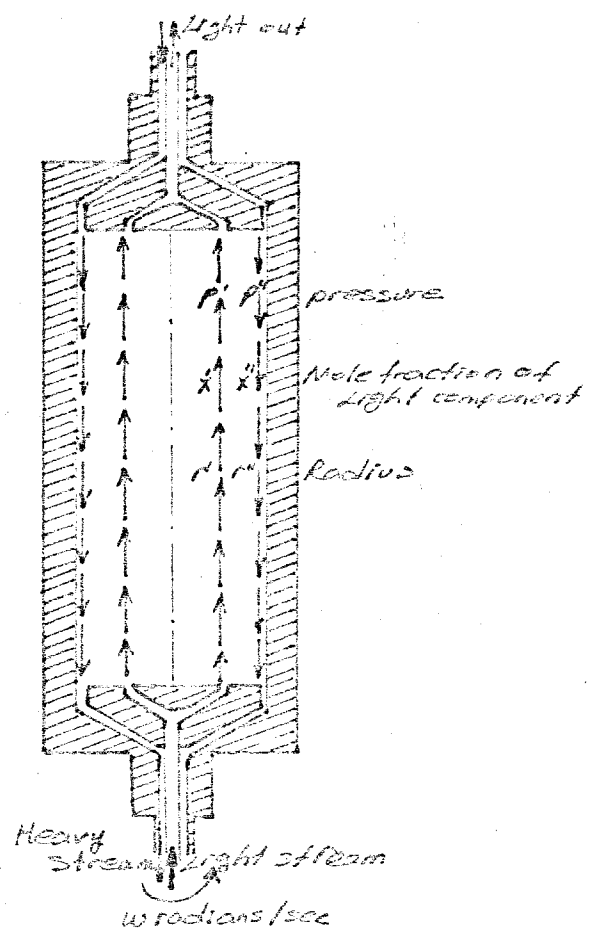 Light out
p' p" pressure
x' x" Mole fraction of
Light component
r' r" Radius
Heavy
Stream Light stream
w radians/sec